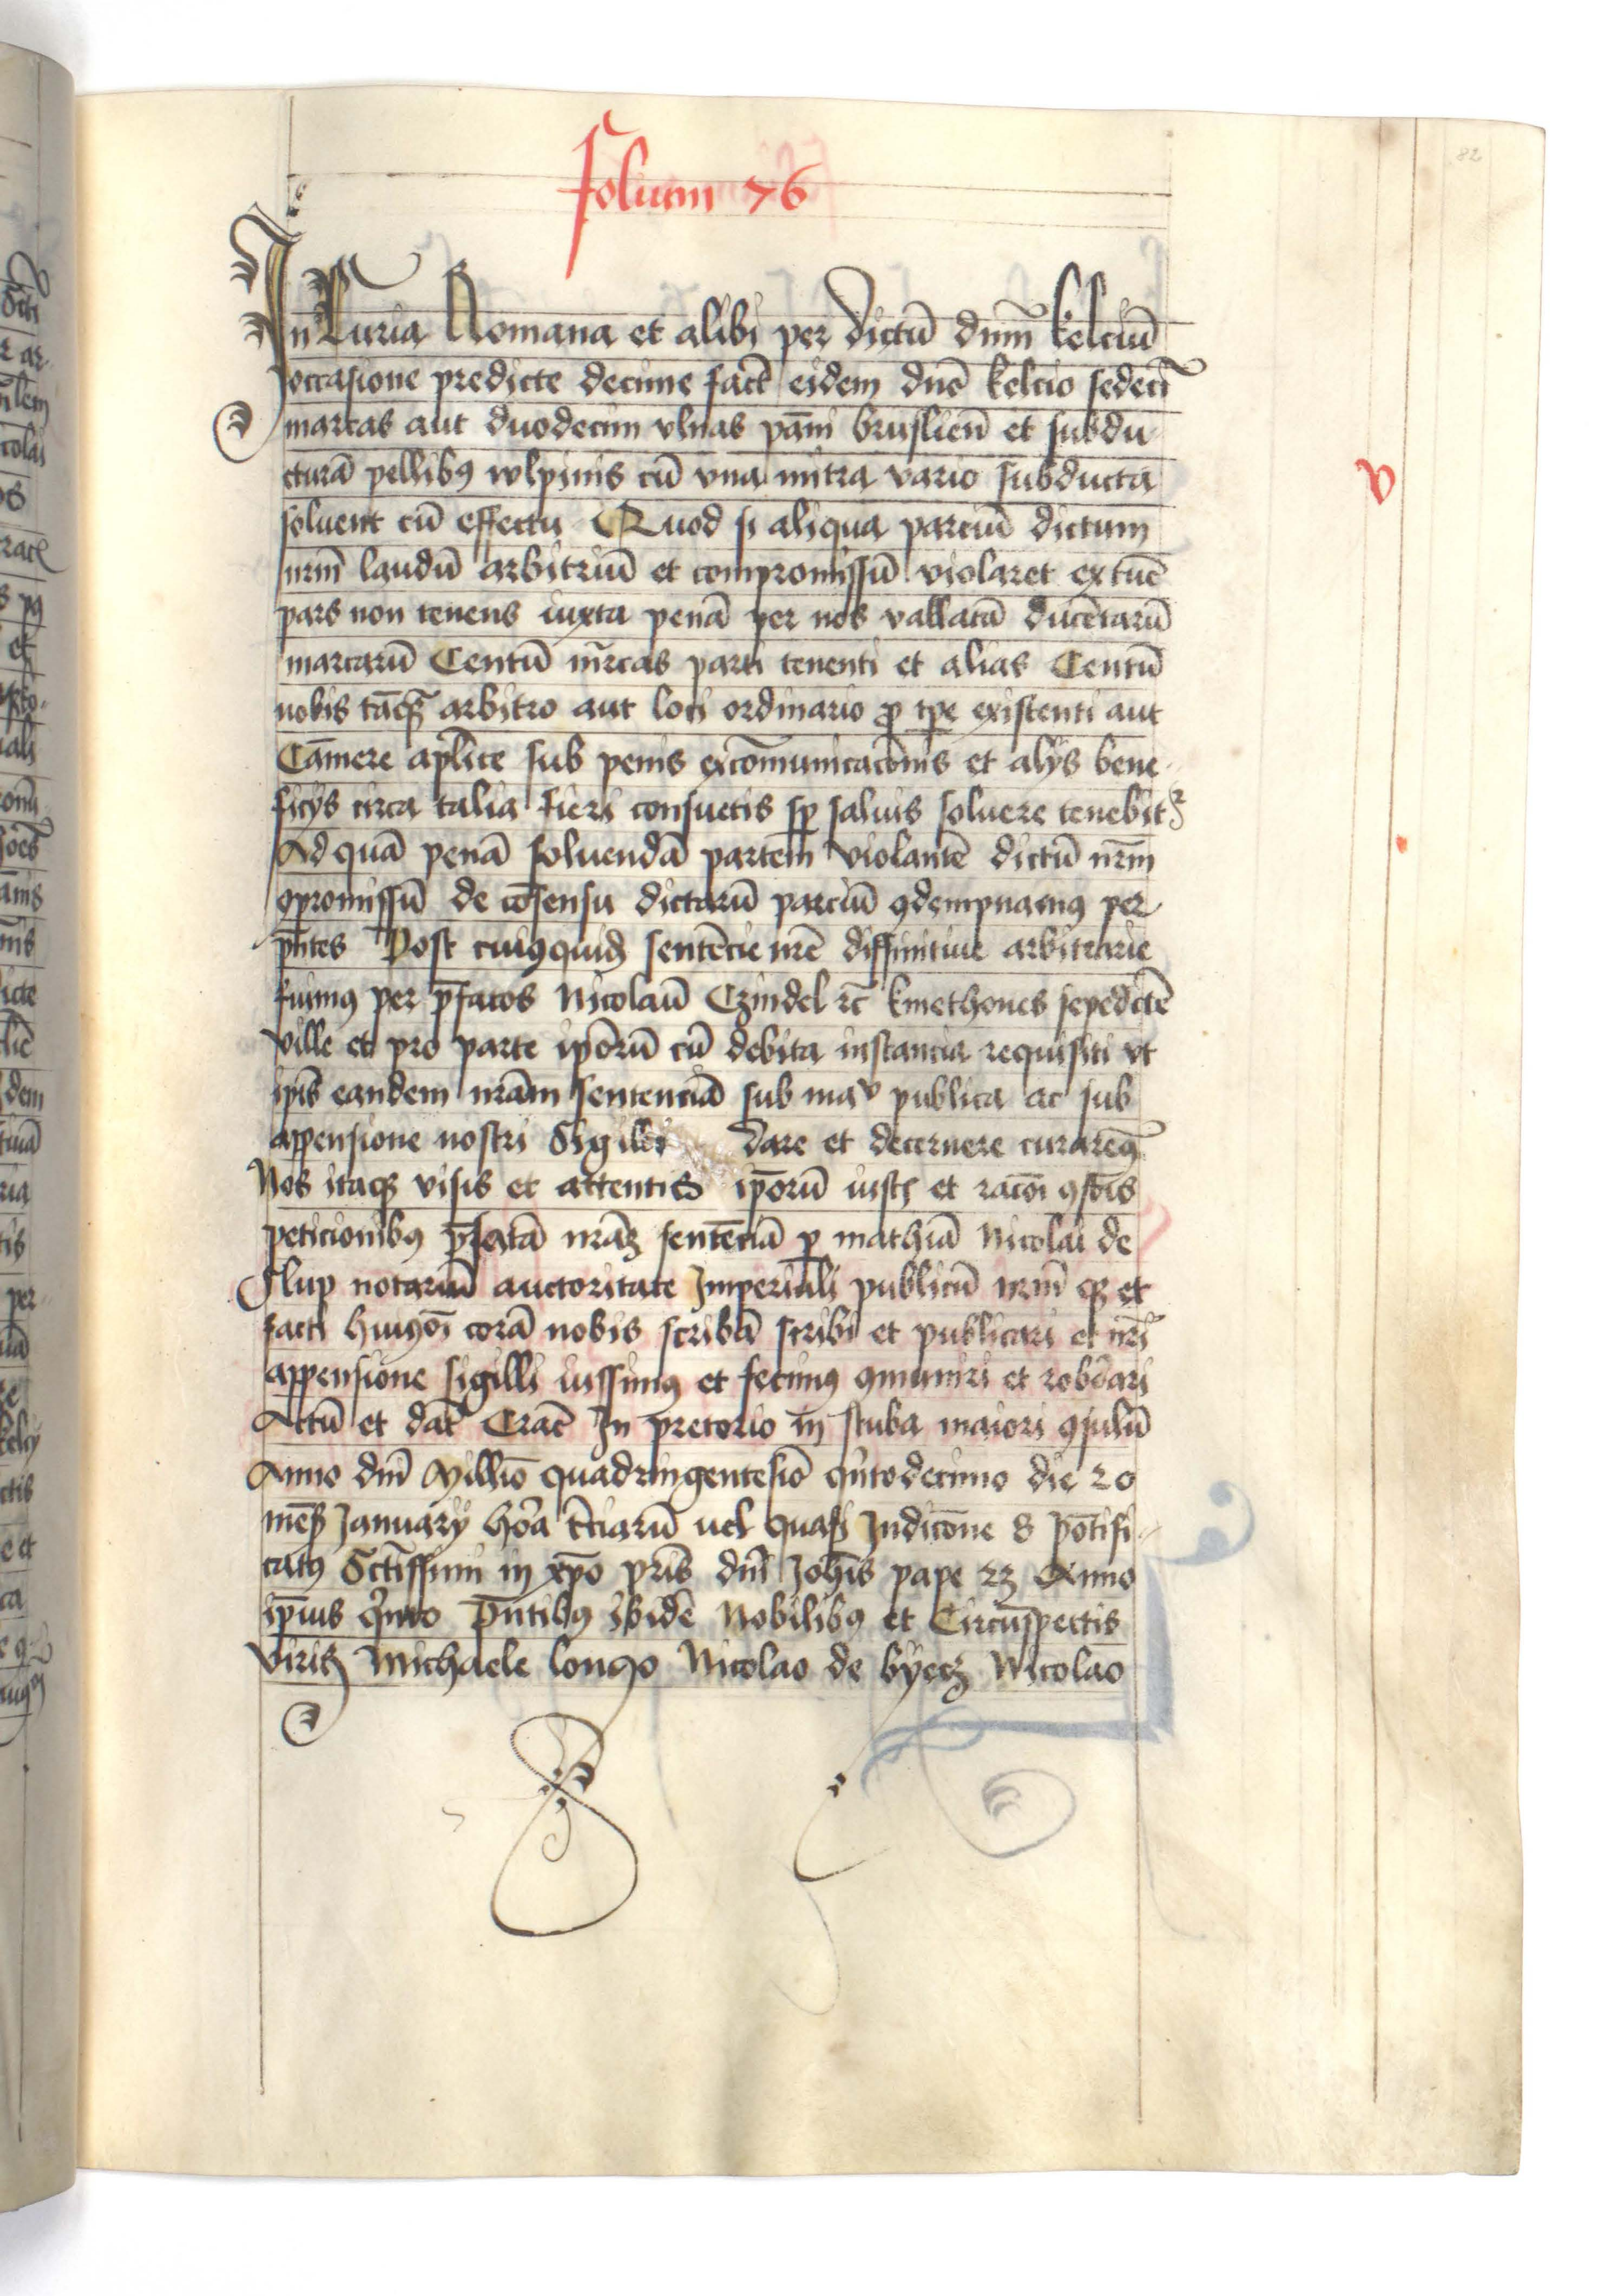 82
folium 76
In Curia Romana et alibi per dictū dnm̄ kelciū
occasione predicte decime fact̄ eidem dnō kelcio sedecī
marcas aut duodecim vlnas pāni bruslien̄ et subdu
cturā pellibꝯ wlpinis cū vna mitra vario subducta
soluent cū effectu Quod si aliqua parciū dictum
nrm̄ laudū arbitriū et compromissū violaret extūc
pars non tenens iuxta penā per nos vallatā ducētarū
marcarū Centū mrcas parti tenenti et alias Centū
nobis tāqꝫ arbitro aut loci ordinario ꝓ tꝑe existenti aut
Cāmere aplice sub penis excōmunicacōnis et alijs bene
ficijs circa talia fieri consuetis sꝑ saluis soluere tenebitꝛ
Ad quā penā soluendā partem violantē dictū nrm̄
ꝯpromissū de cōsensu dictarū parciū ꝯdempnamꝯ per
pn̄tes Post cuiꝯquid sentēcie nrē diffinitiue arbitrarie
fuimꝯ per p̄fatos Nicolaū Czindel ꝛc̄ kmethones sepedcte
ville et pro parte ip̄orū cū debita instancia requisiti vt
ip̄is eandem nrām sentenciā sub maᵛ publica ac sub
appensione nostri Sigilli dare et decernere curaremꝯ
Nos itaqꝫ visis et attentis ip̄orū iustꝭ et racōi ꝯsōis
peticionibꝯ p̄fatā nrāꝫ sentēciā ꝑ mathiā Nicolai de
Slup notariū auctoritate Imperiali publicū nrm̄ qꝫ et
facti huiꝯōi corā nobis scribā scribi et publicari et nrī
appensione sigilli iussimꝯ et fecimꝯ ꝯmuniri et roborari
Actū et dat̄ Crac̄ In pretorio in stuba maiori ꝯsulū
Anno dnī Millīo quadringentesīo qⁱntodecimo die 20
mēs Januarij hora tciarū uel quasi Indicōne 8 pōtifi
catꝯ Sctīssimi in xp̄o pris dnī Joh̄is pape 23 Anno
ip̄ius qⁱnto Pn̄tibꝯ ibidē Nobilibꝯ et Circūspectis
viris Michaele longo Nicolao de byecz Nicolao
v